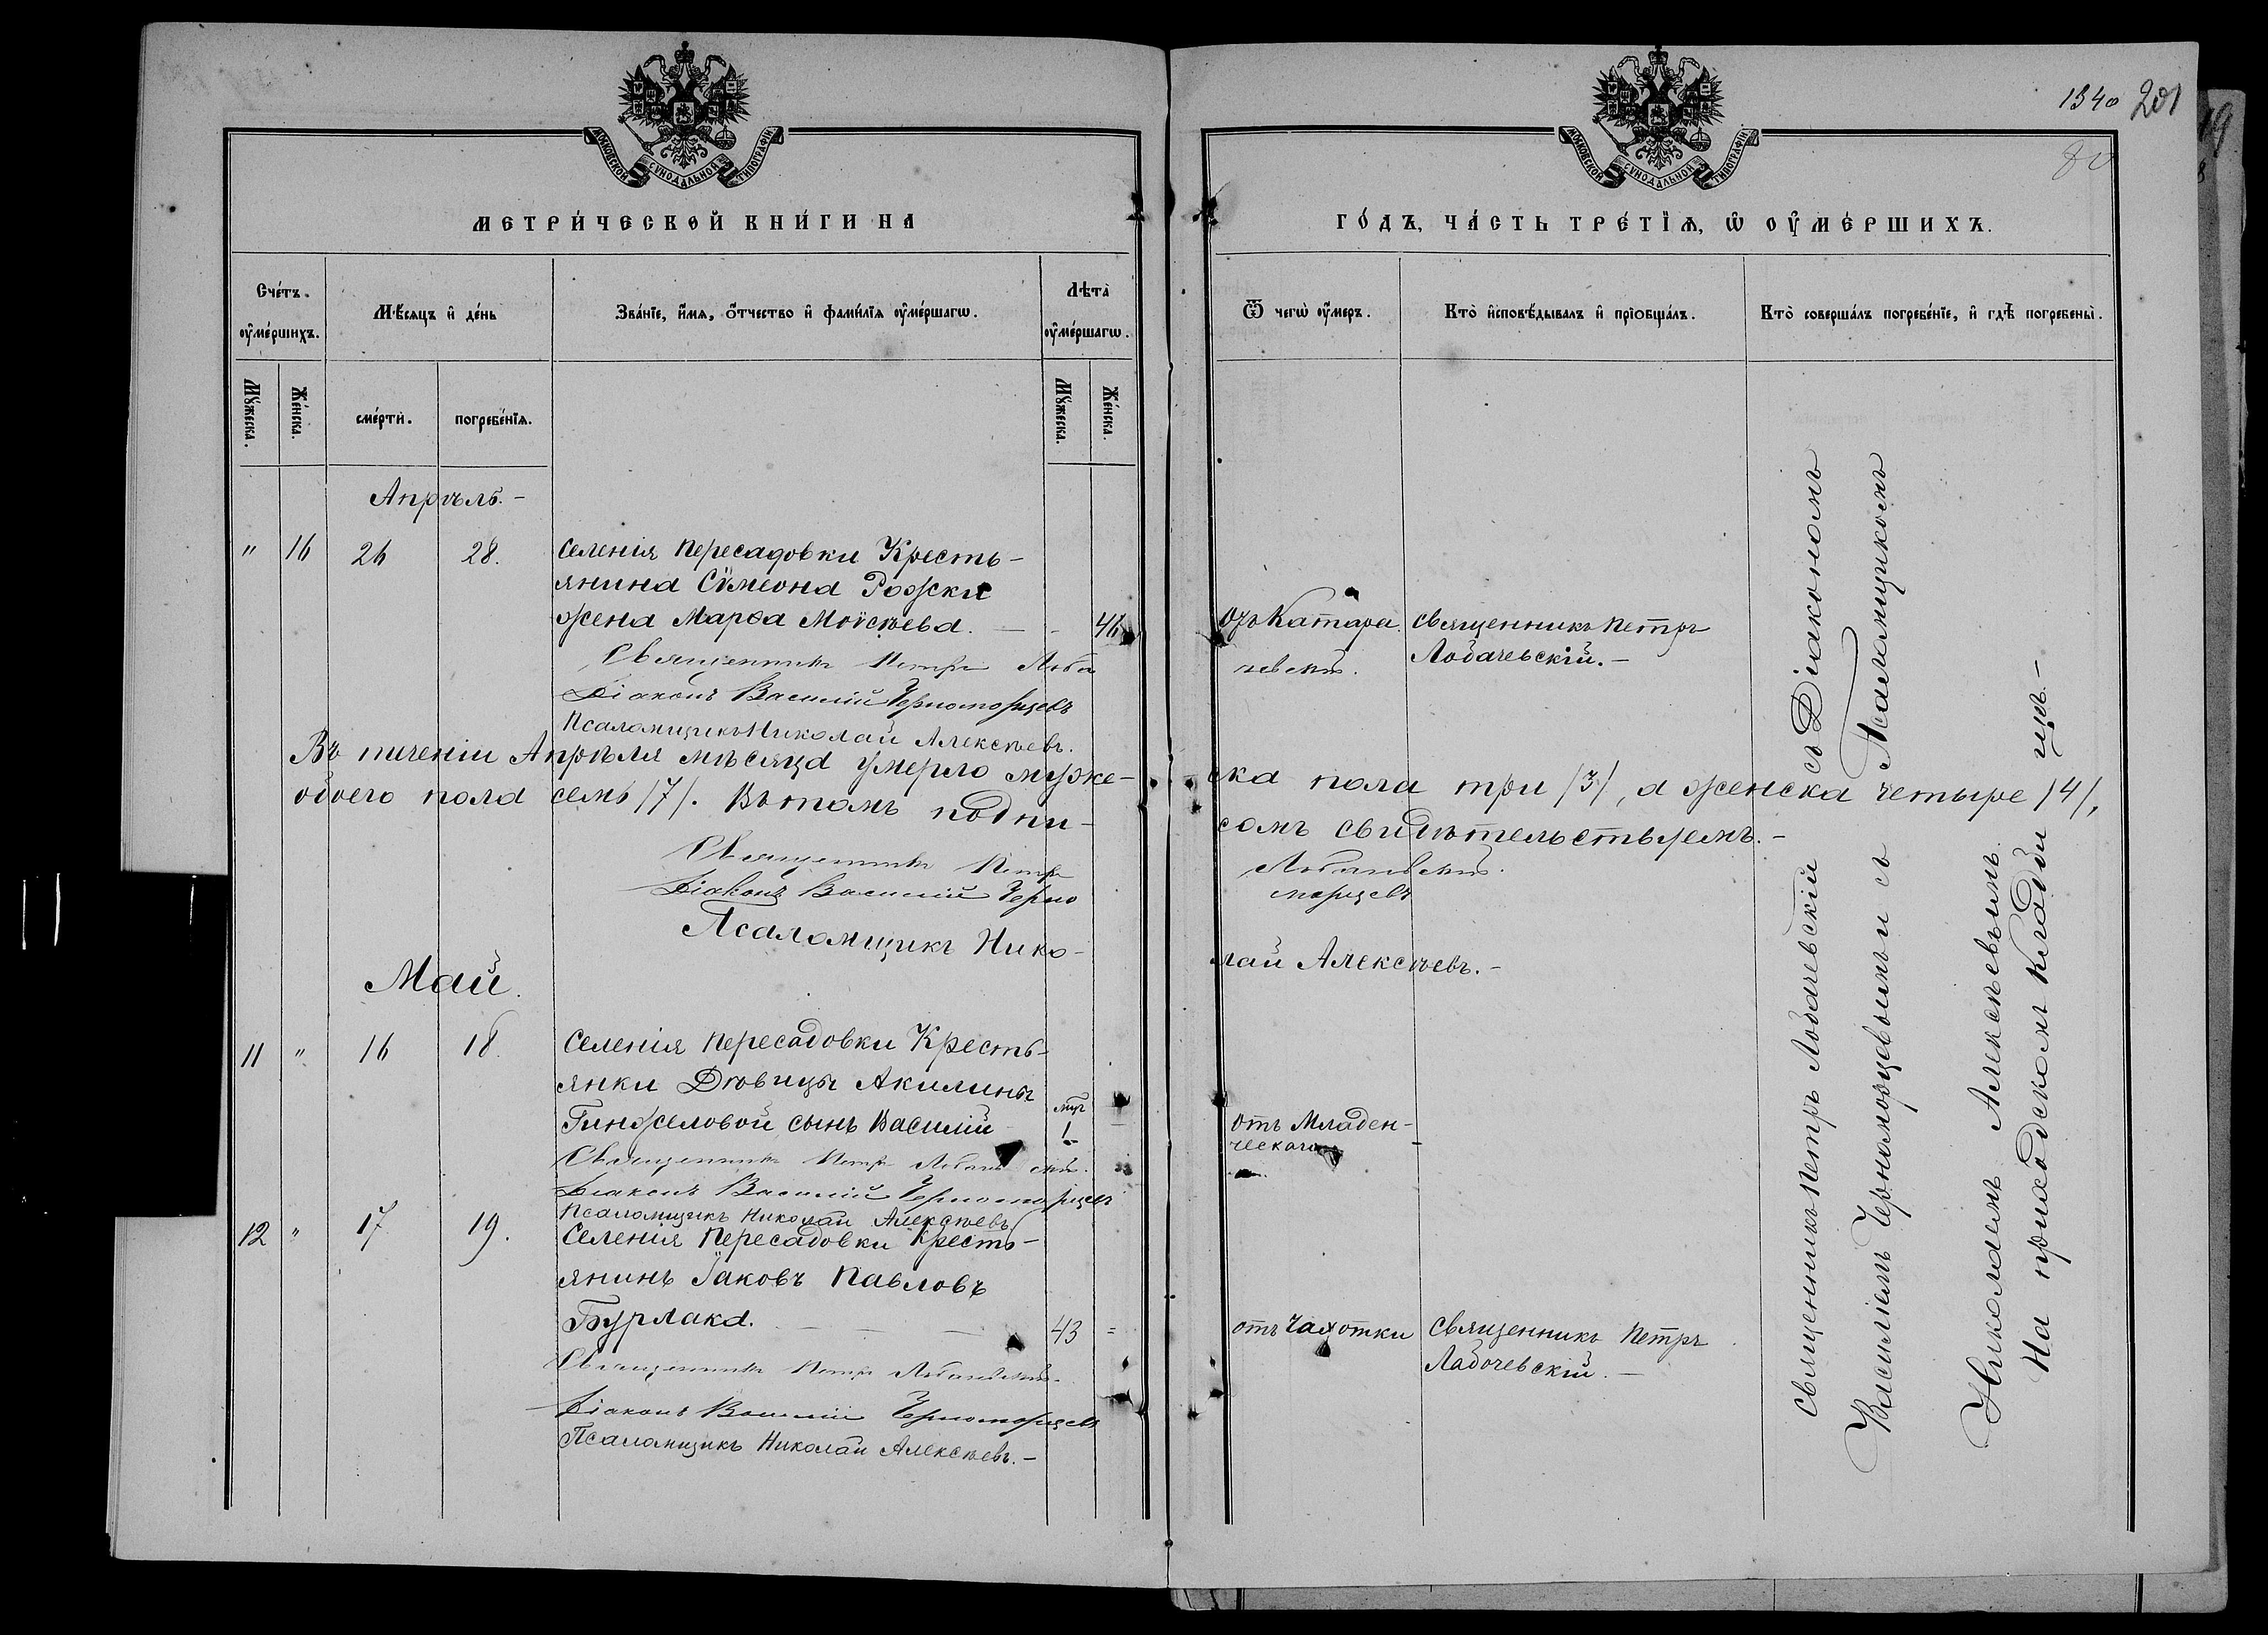 МОСКОВСКОЙ СУНОДАЛЬНОЙ ТИПОГРАФІИ
МЕТРИ́ЧЕСКОЙ КНИ́ГИ НА
Сче́тъ ᲂу҆ме́ршихъ.
Мѣ́сяцъ и҆ де́нь
Зва́нїе, и҆́мѧ, ѻ҆́тчество и҆ фами́лїѧ ᲂу҆ме́ршагѡ.
Лѣта̀ ᲂу҆ме́ршагѡ.
Мꙋ́жеска.
Же́нска.
сме́рти.
погребе́нїѧ.
Мꙋ́жеска.
Же́нска.
Апрѣль. -
" 16 26 28. Селенія Пересадовки Кресть-
янина Сѵмеона Рожки
жена Марѳа Моѵсѣева. — - 46
Священникъ Петръ Лоба
Діаконъ Василій Черноморцевъ
Псаломщикъ Николай Алексѣевъ.
Въ теченіи Апрѣля мѣсяца умерло муже-
обоего пола семь /7/. Въ томъ подпи-
Священникъ Петръ
Діаконъ Василій Черно
Псаломщикъ Нико-
Май.
11 " 16 18. Селенія Пересадовки Кресть-
янки Дѣвицы Акилины
Гинжеловой сынъ Василій
мц
1
Священникъ Петръ
Діаконъ Василій Черноморцевъ
Псаломщикъ Николай Алексѣевъ
12 " 17 19. Селенія Пересадовки Кресть-
янинъ Іаковъ Павловъ
Бурлака. — — — 43 =
Священникъ Петръ Лобачевскій.
Діаконъ Василій Черноморцевъ
Псаломщикъ Николай Алексѣевъ. —
1340 201
80
МОСКОВСКОЙ СУНОДАЛЬНОЙ ТИПОГРАФІИ
ГО́ДЪ, ЧА́СТЬ ТРЕ́ТЇѦ, Ѡ҆ ОУ҆МЕ́РШИХЪ.
Ѿ чегѡ̀ ᲂу҆́меръ.
Кто̀ и҆сповѣ́дывалъ и҆ прїѡбща́лъ.
Кто̀ соверша́лъ погребе́нїе, и҆ гдѣ̀ погребены̀.
Отъ Катара. Священникъ Петръ
Лобачевскій. —
чевскій.
ска пола три /3/, а женска четыре /4/,
сомъ свидѣтельствуемъ. -
Лобачевскій.
морцевъ
лай Алексѣевъ. -
отъ Младен-
ческаго
отъ Чахотки Священникъ Петръ
Лабочевскій. —
Священникъ Петръ Лобачевскій съ Діакономъ
Василіемъ Черноморцевымъ и съ Псаломщикомъ
Николаемъ Алексѣевымъ.
На приходскомъ кладби щѣ. —